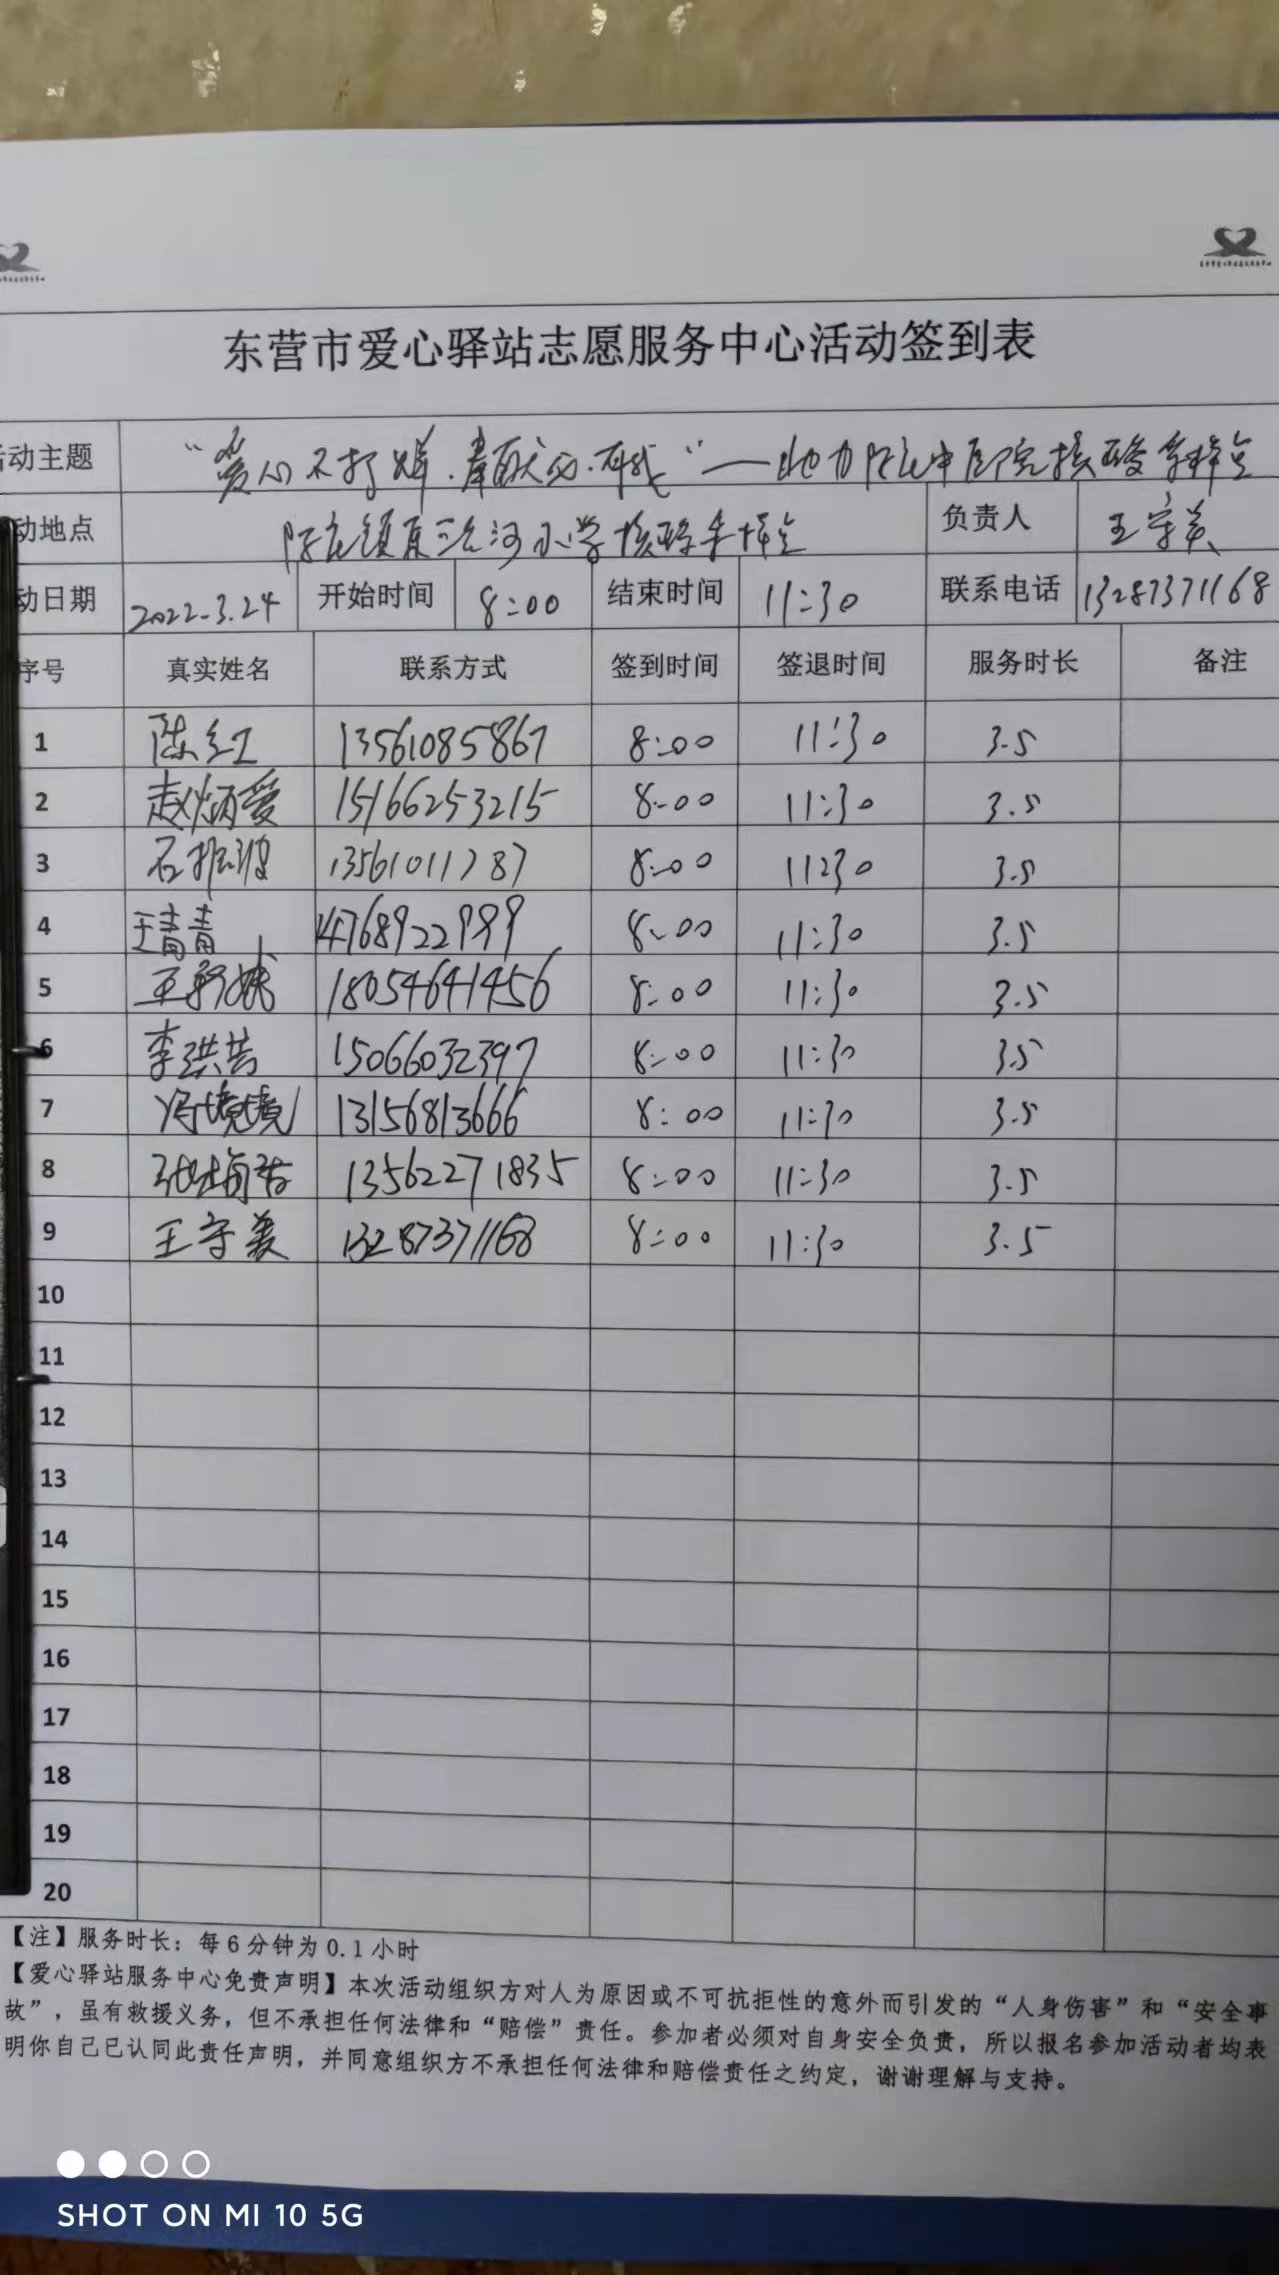 东营市爱心驿站志愿服务中心活动签到表
动主题 “爱心不打烊.奉献必.有我”——助力陈庄中医院核酸采样点
动地点 陈庄镇原三合河小学核酸采样点 负责人 王守美
动日期 2022.3.24 开始时间 8:00 结束时间 11:30 联系电话 13287371168
序号 真实姓名 联系方式 签到时间 签退时间 服务时长 备注
1 陈红 13561085867 8:00 11:30 3.5
2 赵炳爱 15166253215 8:00 11:30 3.5
3 石振波 13561011787 8:00 11:30 3.5
4 王青青 14768922999 8:00 11:30 3.5
5 王 18054641456 8:00 11:30 3.5
6 李洪芸 15066032397 8:00 11:30 3.5
7 冯境境 13156813666 8:00 11:30 3.5
8 张梅 13562271835 8:00 11:30 3.5
9 王守美 13287371168 8:00 11:30 3.5
10
11
12
13
14
15
16
17
18
19
20
【注】服务时长：每6分钟为0.1小时
【爱心驿站服务中心免责声明】本次活动组织方对人为原因或不可抗拒性的意外而引发的“人身伤害”和“安全事
故”，虽有救援义务，但不承担任何法律和“赔偿”责任。参加者必须对自身安全负责，所以报名参加活动者均表
明你自己已认同此责任声明，并同意组织方不承担任何法律和赔偿责任之约定，谢谢理解与支持。
SHOT ON MI 10 5G